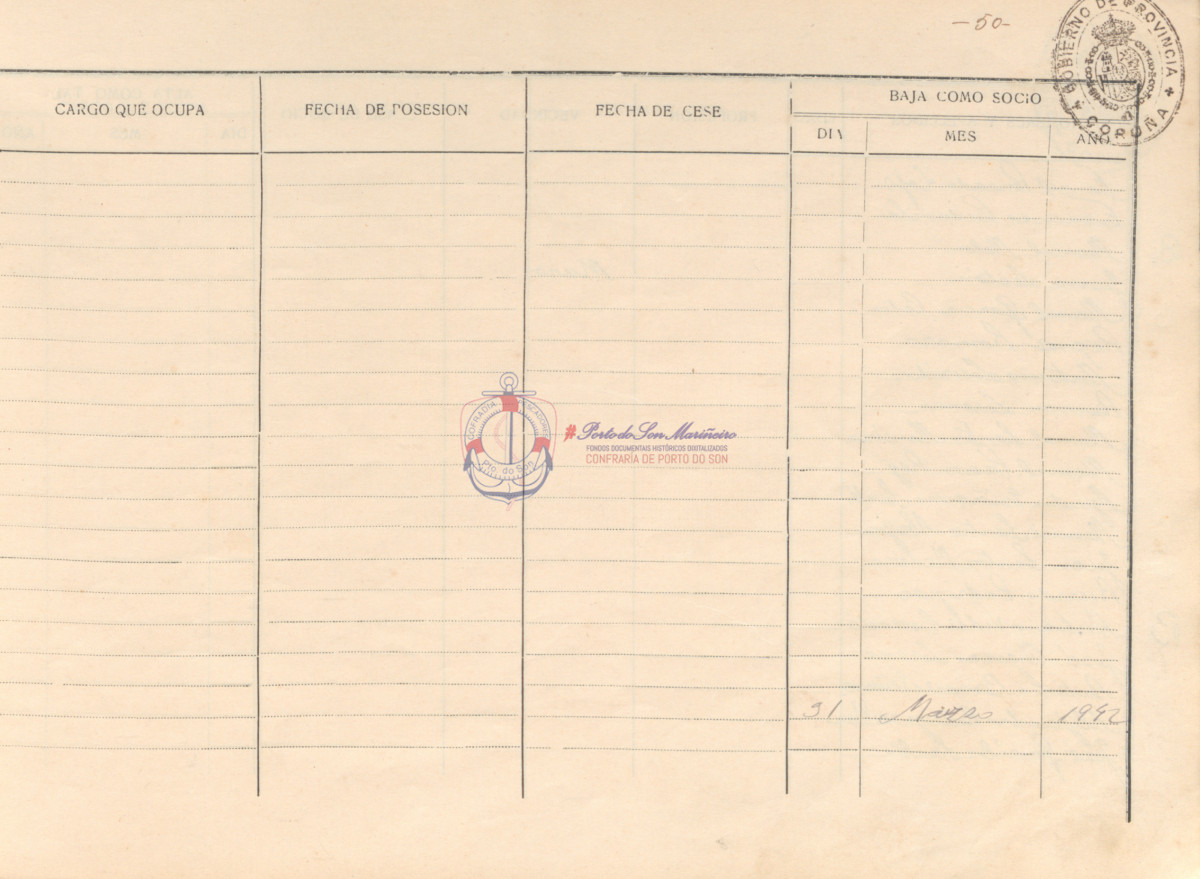 -50-
GOBIERNO DE PROVINCIA
CORUÑA
CARGO QUE OCUPA
FECHA DE POSESION
FECHA DE CESE
BAJA COMO SOCIO
DIA
MES
AÑO
COFRADIA PESCADORES
Pto. do Son
#PortodoSonMariñeiro
FONDOS DOCUMENTAIS HISTÓRICOS DIXITALIZADOS
CONFRARÍA DE PORTO DO SON
31 Marzo 1942